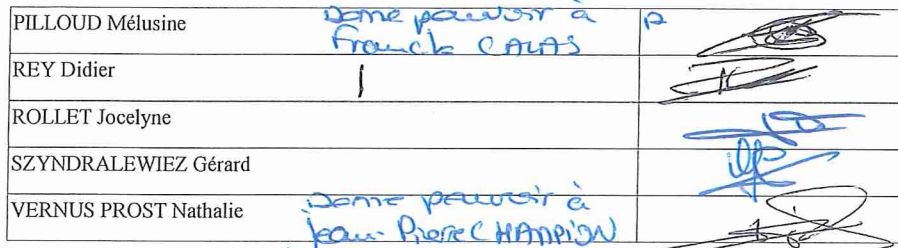 PILLOUD Mélusine Donne pouvoir à
Franck CALAS P
REY Didier
ROLLET Jocelyne
SZYNDRALEWIEZ Gérard
VERNUS PROST Nathalie Donne pouvoir à
Jean-Pierre CHAMPION